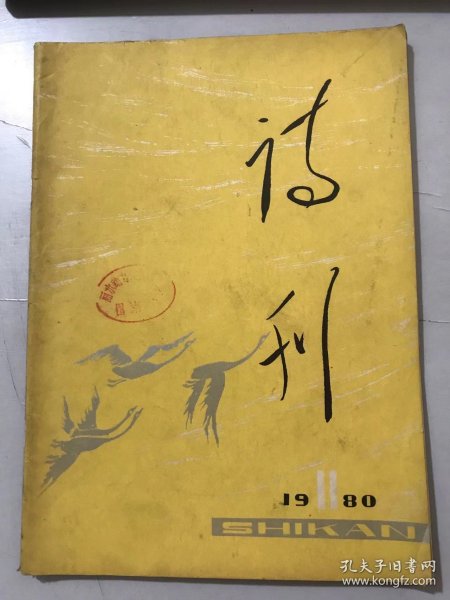 诗
刊
19 80
SHIKAN
孔夫子旧书网
www.kongfz.com